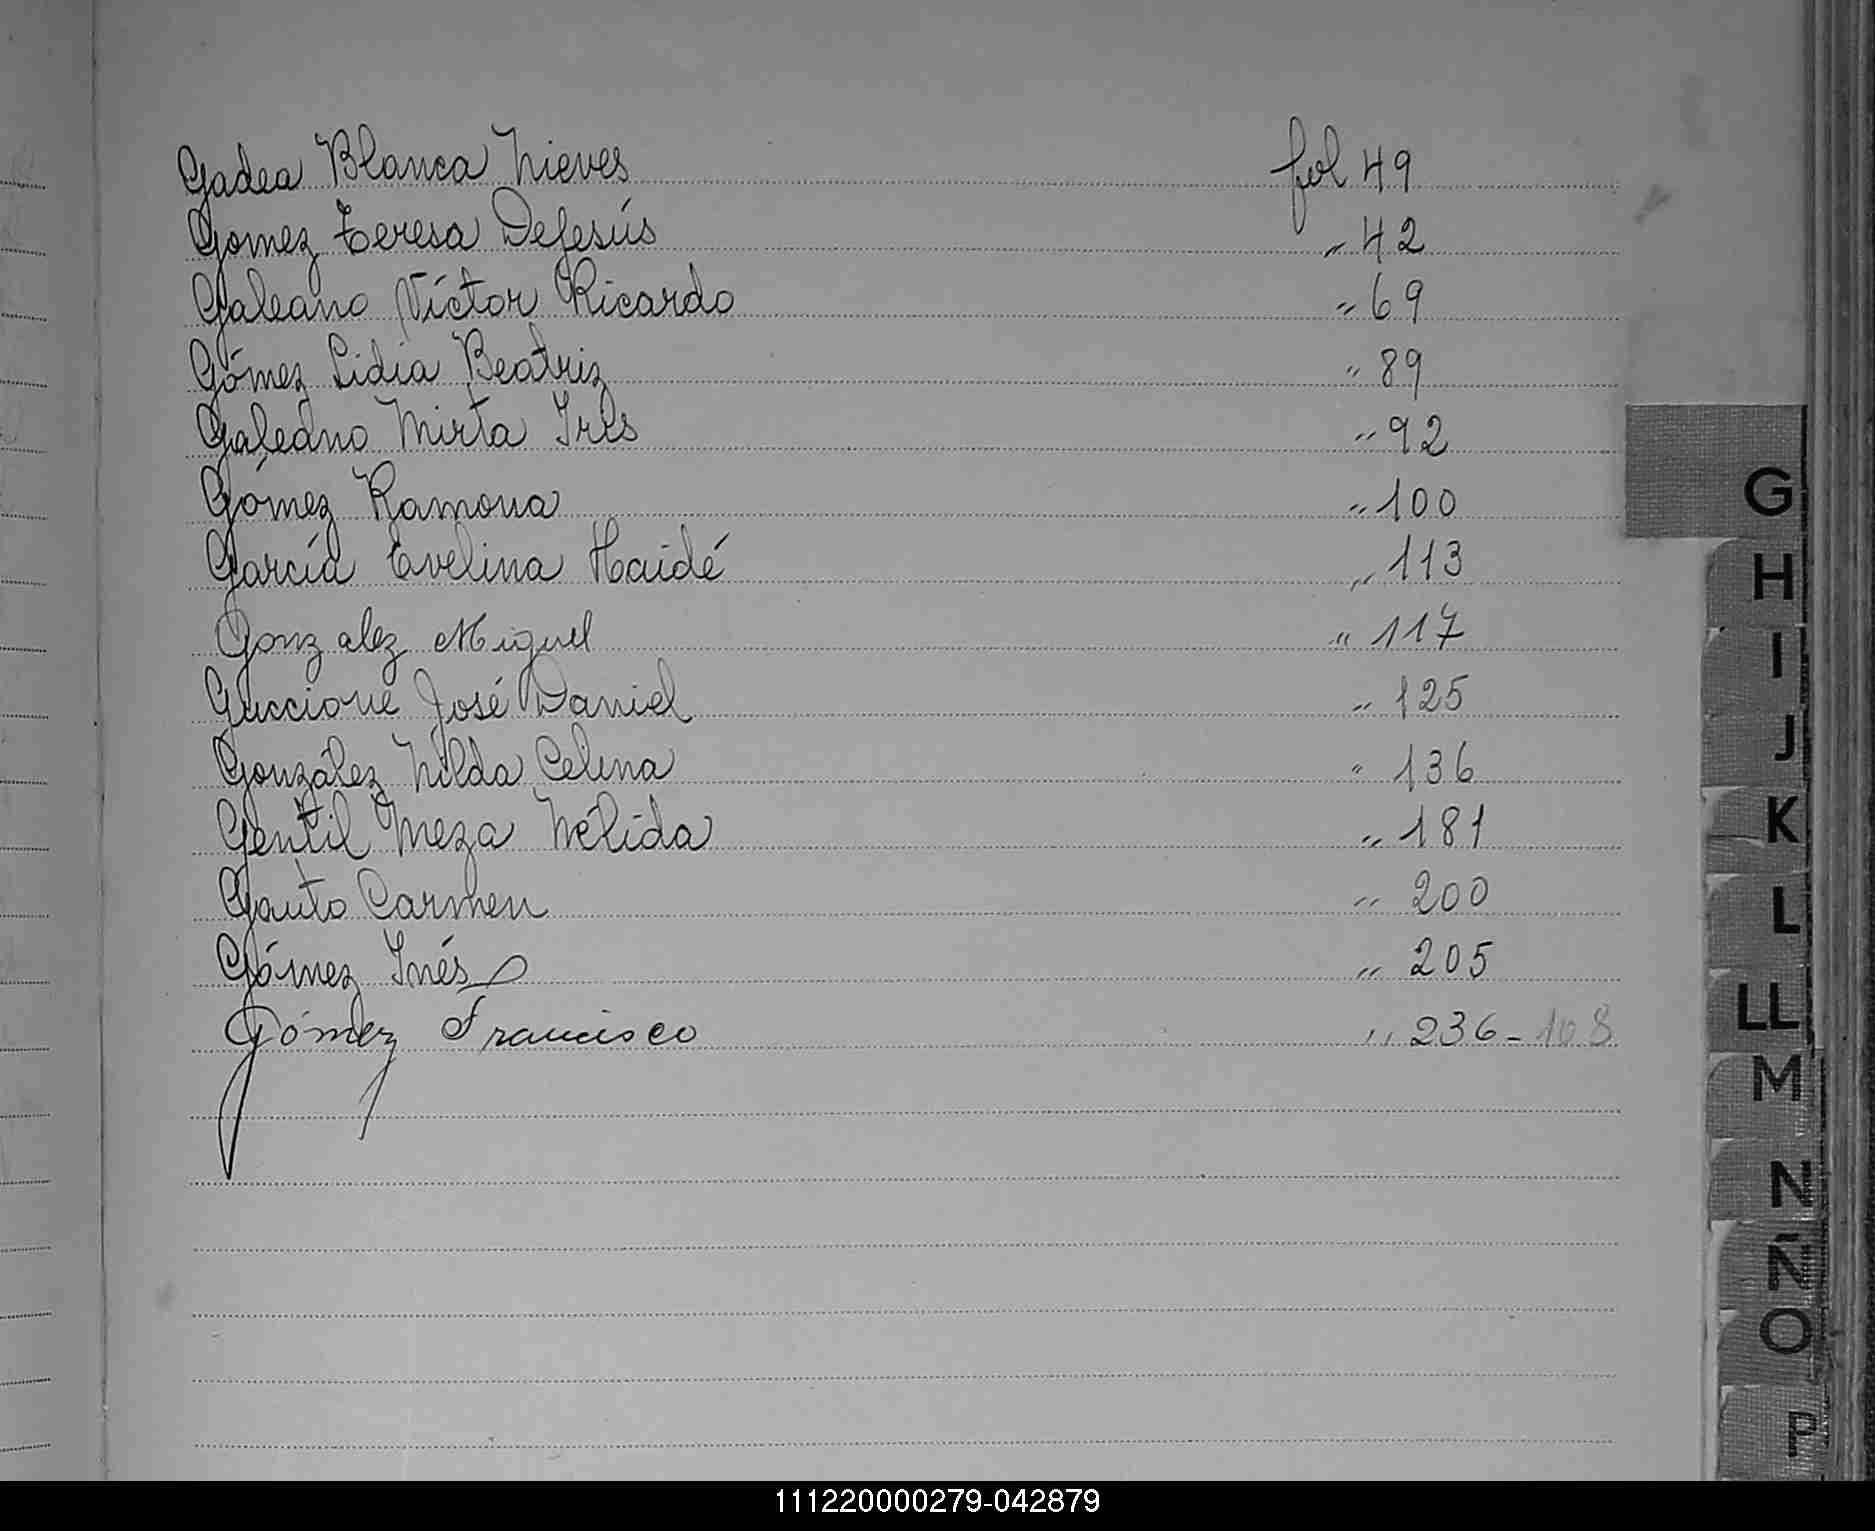 Gadea Blanca Nieves fol 49
Gomez Teresa Dejesús " 42
Galeano Víctor Ricardo " 69
Gómez Lidia Beatriz " 89
Galeano Mirta Iris " 92
Gómez Ramona " 100
García Evelina Haidé " 113
Gonzalez Miguel " 117
Guccione José Daniel " 125
González Nilda Celina " 136
Gentil Meza Nélida " 181
Gauto Carmen " 200
Gómez Inés " 205
Gómez Francisco " 236-108
G
H
I
J
K
L
LL
M
N
Ñ
O
P
111220000279-042879